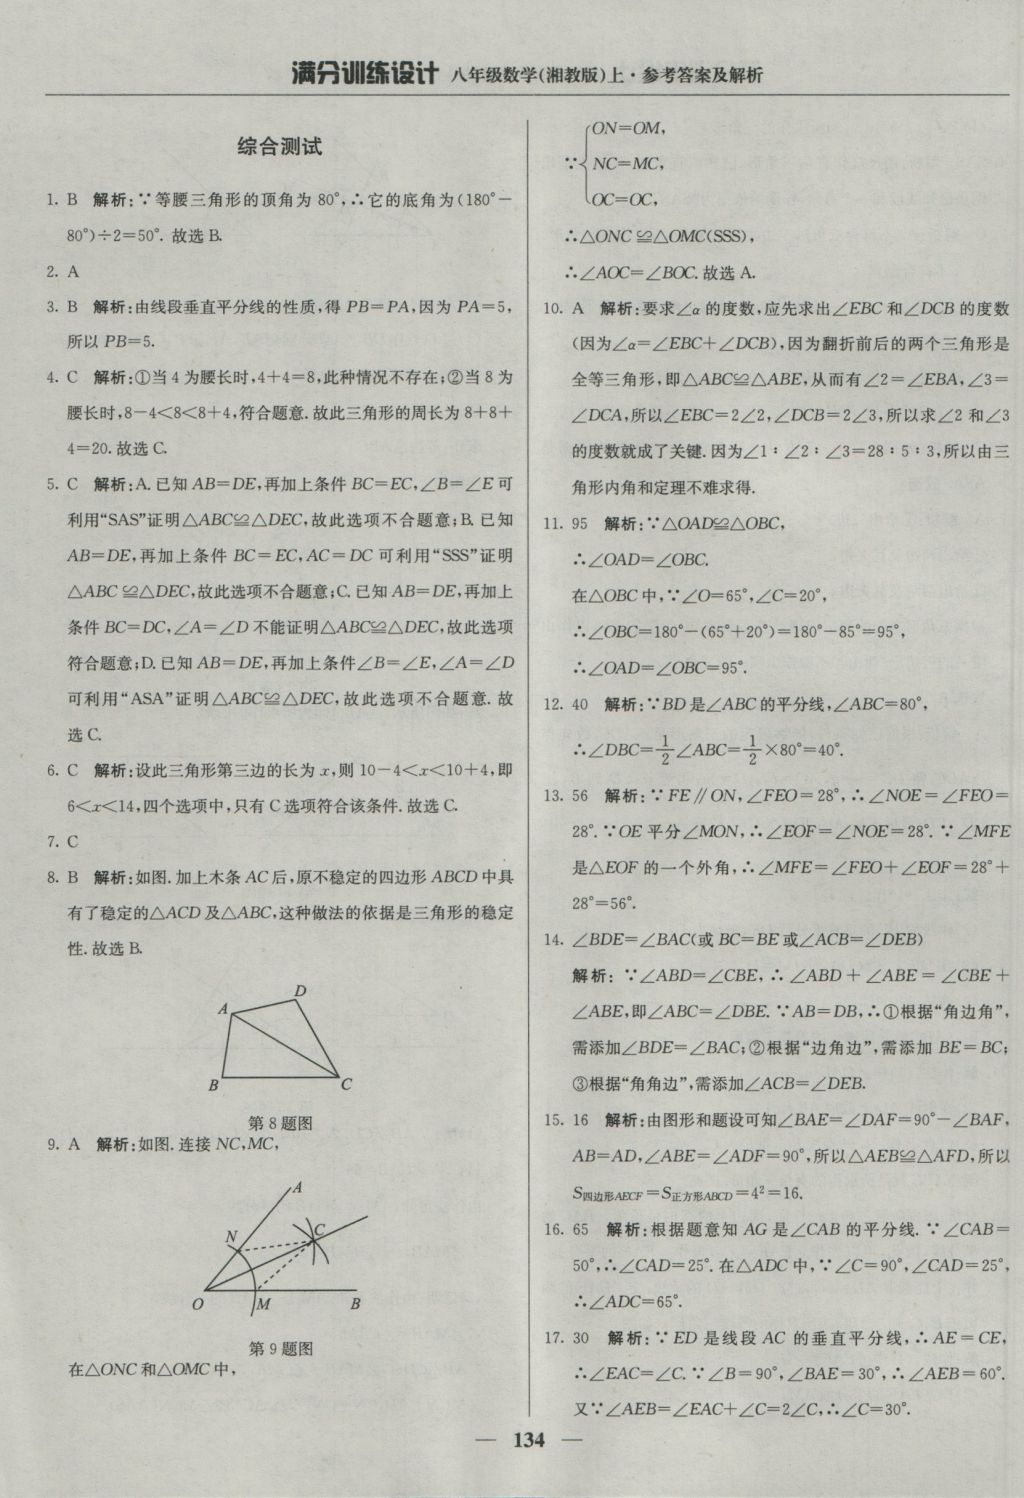 满分训练设计 八年级数学(湘教版)上·参考答案及解析
综合测试
1. B 解析:∵等腰三角形的顶角为 80°,∴它的底角为(180°－
80°)÷2=50°. 故选 B.
2. A
3. B 解析:由线段垂直平分线的性质,得 PB=PA,因为 PA=5,
所以 PB=5.
4. C 解析:①当 4 为腰长时,4+4=8,此种情况不存在;②当 8 为
腰长时,8-4<8<8+4,符合题意. 故此三角形的周长为 8+8+
4=20. 故选 C.
5. C 解析:A. 已知 AB=DE,再加上条件 BC=EC,∠B=∠E 可
利用“SAS”证明△ABC≌△DEC,故此选项不合题意;B. 已知
AB=DE,再加上条件 BC=EC,AC=DC 可利用“SSS”证明
△ABC≌△DEC,故此选项不合题意;C. 已知 AB=DE,再加上
条件 BC=DC,∠A=∠D 不能证明△ABC≌△DEC,故此选项
符合题意;D. 已知 AB=DE,再加上条件∠B=∠E,∠A=∠D
可利用“ASA”证明△ABC≌△DEC,故此选项不合题意. 故
选 C.
6. C 解析:设此三角形第三边的长为 x,则 10-4<x<10+4,即
6<x<14,四个选项中,只有 C 选项符合该条件. 故选 C.
7. C
8. B 解析:如图. 加上木条 AC 后,原不稳定的四边形 ABCD 中具
有了稳定的△ACD 及△ABC,这种做法的依据是三角形的稳定
性. 故选 B.
A D
B C
第 8 题图
9. A 解析:如图. 连接 NC,MC,
A
N C
O M B
第 9 题图
在△ONC 和△OMC 中,
ON=OM,
∵ NC=MC,
OC=OC,
∴△ONC≌△OMC(SSS),
∴∠AOC=∠BOC. 故选 A.
10. A 解析:要求∠α 的度数,应先求出∠EBC 和∠DCB 的度数
(因为∠α=∠EBC+∠DCB),因为翻折前后的两个三角形是
全等三角形,即△ABC≌△ABE,从而有∠2=∠EBA,∠3=
∠DCA,所以∠EBC=2∠2,∠DCB=2∠3,所以求∠2 和∠3
的度数就成了关键. 因为∠1∶∠2∶∠3=28∶5∶3,所以由三
角形内角和定理不难求得.
11. 95 解析:∵△OAD≌△OBC,
∴∠OAD=∠OBC.
在△OBC 中,∵∠O=65°,∠C=20°,
∴∠OBC=180°-(65°+20°)=180°-85°=95°,
∴∠OAD=∠OBC=95°.
12. 40 解析:∵BD 是∠ABC 的平分线,∠ABC=80°,
∴∠DBC=1/2∠ABC=1/2×80°=40°.
13. 56 解析:∵FE∥ON,∠FEO=28°,∴∠NOE=∠FEO=
28°. ∵OE 平分∠MON,∴∠EOF=∠NOE=28°. ∵∠MFE
是△EOF 的一个外角,∴∠MFE=∠FEO+∠EOF=28°+
28°=56°.
14. ∠BDE=∠BAC(或 BC=BE 或∠ACB=∠DEB)
解析:∵∠ABD=∠CBE,∴∠ABD+∠ABE=∠CBE+
∠ABE,即∠ABC=∠DBE. ∵AB=DB,∴①根据“角边角”,
需添加∠BDE=∠BAC;②根据“边角边”,需添加 BE=BC;
③根据“角角边”,需添加∠ACB=∠DEB.
15. 16 解析:由图形和题设可知∠BAE=∠DAF=90°-∠BAF,
AB=AD,∠ABE=∠ADF=90°,所以△AEB≌△AFD,所以
S四边形AECF=S正方形ABCD=4²=16.
16. 65 解析:根据题意知 AG 是∠CAB 的平分线. ∵∠CAB=
50°,∴∠CAD=25°. 在△ADC 中,∵∠C=90°,∠CAD=25°,
∴∠ADC=65°.
17. 30 解析:∵ED 是线段 AC 的垂直平分线,∴AE=CE,
∴∠EAC=∠C. ∵∠B=90°,∠BAE=30°,∴∠AEB=60°.
又∵∠AEB=∠EAC+∠C=2∠C,∴∠C=30°.
— 134 —